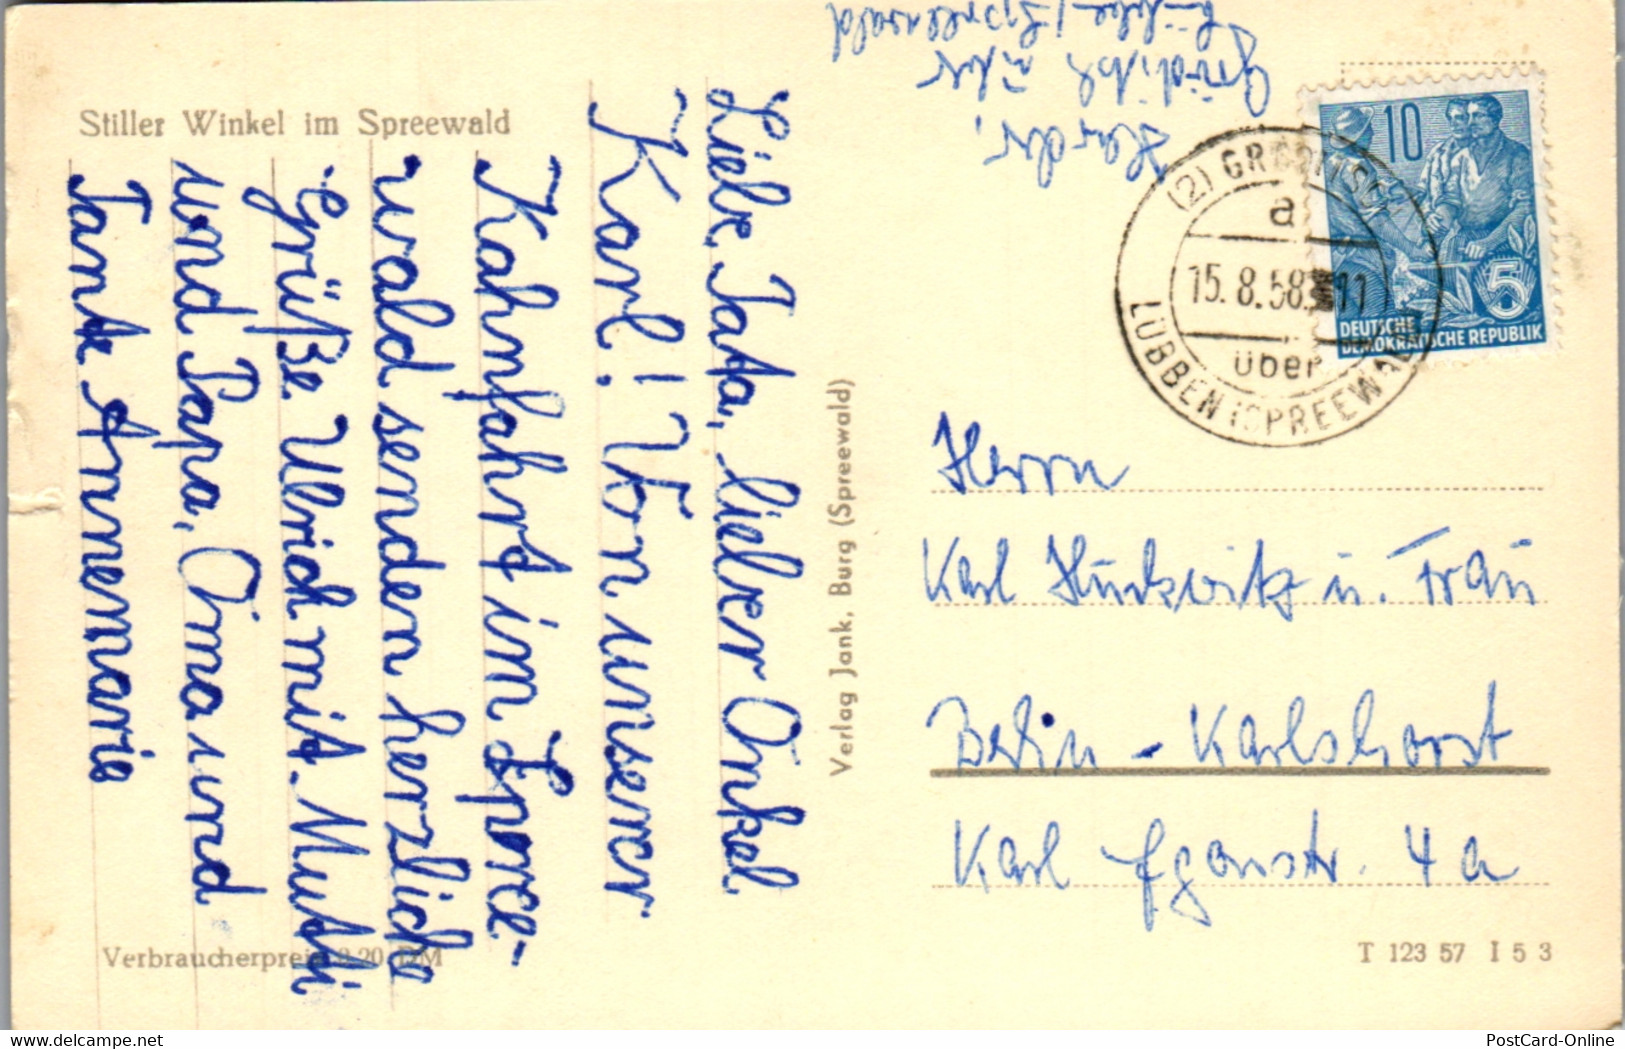 Stiller Winkel im Spreewald
Liebe Tata, lieber Onkel
Karl! Von unserer
Kahnfahrt im Spree-
wald senden herzliche
Grüße Ulrich mit Mutti
und Papa, Oma und
Tante Annemarie
Verbraucherpreis 0,20 DM
Verlag Jank, Burg (Spreewald)
über
Spreewald
10
5
DEUTSCHE
DEMOKRATISCHE REPUBLIK
(2) GRÖDITSCH
a
15.8.58.-11
über
LÜBBEN (SPREEWALD)
Herrn
Karl u. Frau
Berlin - Karlshorst
Karl Egonstr. 4 a
T 123 57 I 5 3
delcampe.net
PostCard-Online